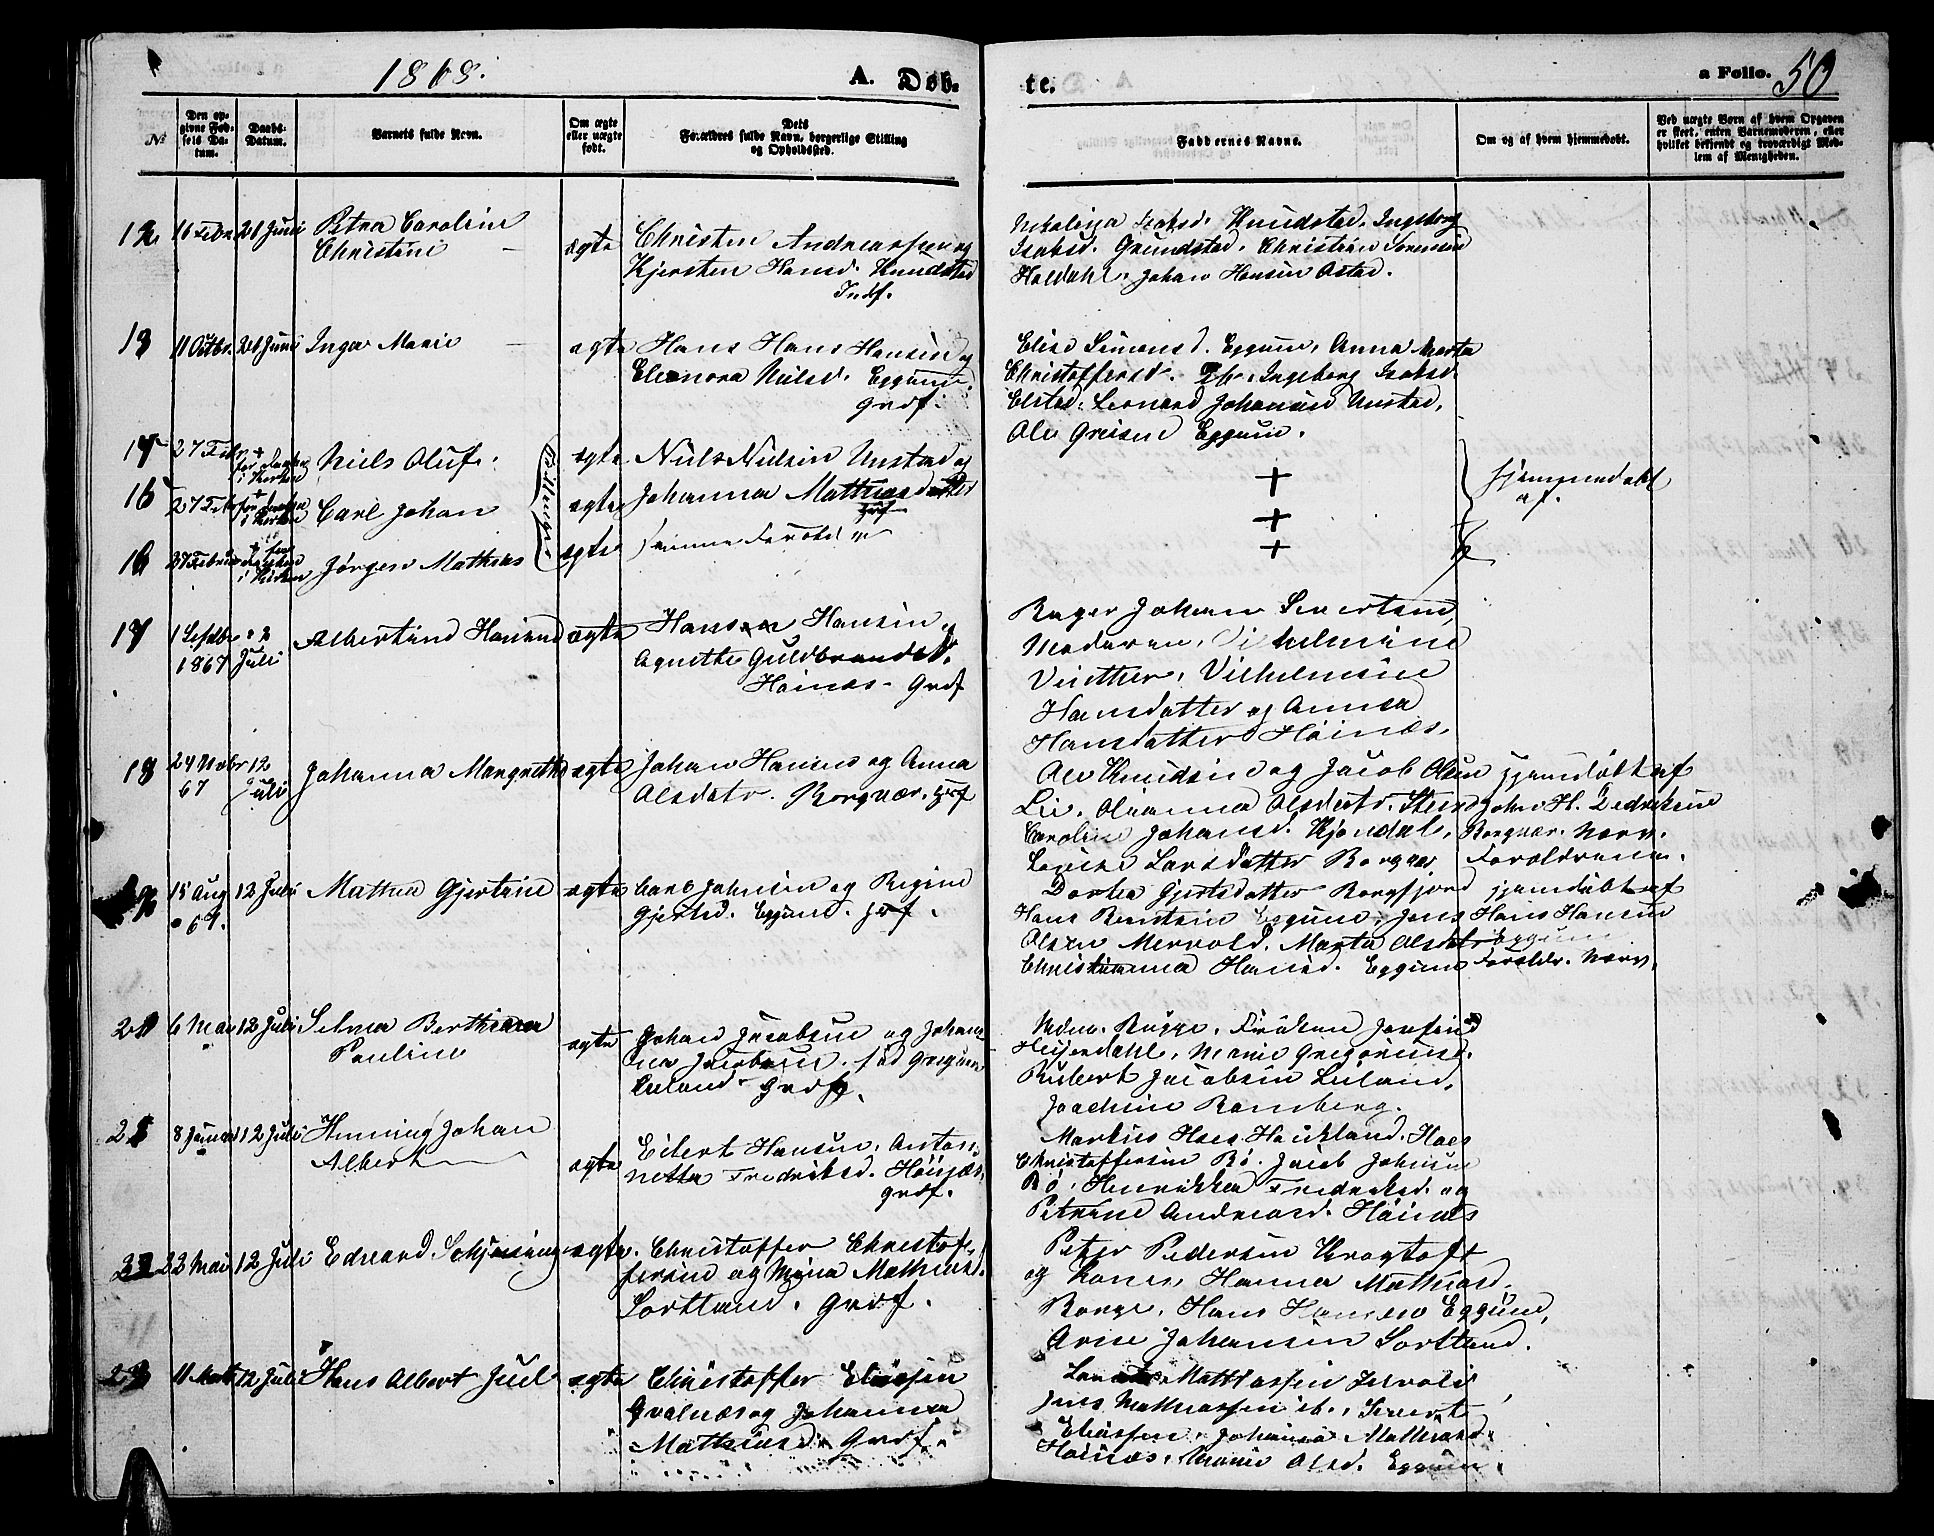 1868.
A. Døb-
te.
a Folio. 50
№
Den opgivne Fødsels Datum.
Daabs-Datum.
Barnets fulde Navn.
Om ægte eller uægte født.
Dets Forældres fulde Navn, borgerlige Stilling og Opholdssted.
Faddernes Navne.
Om og af hvem hjemmedøbt.
Ved uægte Børn af hvem Opgaven er skeet, enten Barnemoderen, eller hvilket bekjendt og troværdigt Medlem af Menigheden.
12 16 Febr 21 Juni Petra Caroline
Christine
ægte
Christen Andreassen og
Kjersten Hansd. Knudstad
Indf.
Isaksd. Knudstad. Ingeborg
Isaksd. Grundstad. Christian Sørensen
Holdahl. Johan Hansen Astad.
13 11 Octbr. 21 Juni Inga Marie
ægte
Hans Hans Hansen og
Eleonora Nielsd. Eggum.
Grdf.
Elise Simonsd. Eggum, Anna Marta
Christoffersd. Ib. Ingeborg Isaksd.
Elstad. Leonard Johansen Unstad,
Ole Eggum.
14 27 Febr + før daaben i Kirken Niels Oluf.
ægte
Niels Nielsen Unstad og
+
hjemmedøbt
af
15 27 Febr + før daaben i Kirken Carl Johan
ægte
Johanna Mathiasdatter
Grdf
+
16 27 Febr + før daaben i Kirken Jørgen Mathias
ægte
samme Forældre
+
17 1 Septbr 1867 2 Juli Albertine Hansine ægte
Hans Hansen og
Agnethe Guldbrandsd.
Høinæs. Grdf
Johan Sivertsen,
Moderen, Vilhelmine
Vinther, Vilhelmine
Hansdatter og Anna
Hansdatter Høinæs.
18 24 Novbr 67 12 Juli Johanna Margrethe ægte
Johan Hansen og Anna
Olsdatr. Borgvær. Grdf
Ole Knudsen og Jacob Olsen
Lie. Olianna Olsdatr. Steen
Caroline Johansd. Kjøndal,
Larsdatter Borgvær
hjemdøbt af
John H. Dedriksen
Borgvær. Nærv.
Forældrene.
19 15 Aug 67. 12 Juli Mathea Gjertine ægte
Carl Johnsen og Regine
Gjertsd. Eggum. Grdf.
Dortea Gjertsdatter Borgfjord
Hans Berntsen Eggum, Jens
Olsen Mervold. Marta Olsdatr
Christianna Hansd. Eggum
hjemdøbt af
Hans Hansen
Eggum
Forældr. Nærv.
20 6 Mai 12 Juli Selma Berthina
Pauline
ægte
Johan Jacobsen og Johanna
Jacobsen. fød
Leland Grdf.
Mdm. Bugge. Frøken Josefine
Heijerdahl, Marie Gregoriusd.
Rubert Jacobsen Leland,
Joachim Ramberg.
21 8 Januar 12 Juli Henning Johan
Albert
ægte
Eilert Hansen, Antonette
Fredriksd. Høinæs,
Grdf.
Markus Haes Haukland. Haes
Christoffersen Bø. Jacob Johnsen
Bø. Henrikka Fredriksd. og
Petrine Andreasd. Høinæs
22 22 Mai 12 Juli Edvard Schjelning ægte.
Christoffer Christoffersen
og Mina Mathiasd.
Sortland. Grdf.
Peter Pedersen Krogtoft
og Kone, Hanna Mathiasd.
Borge, Hans Hansen Eggum,
Arne Johansen Sortland.
23 11 Marts 12 Juli Hans Albert Juel ægte
Christoffer Eliassen
Qvalnæs og Johanna
Mathiasd. Grdf.
Mathiassen
Jens Mathiassen ib., Sivert
Eliassen, Johanna Mathiasd.
Høinæs, Marie Olsd. Eggum.